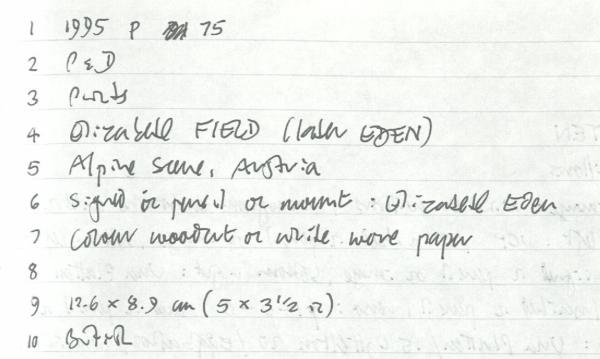 1 1995 P 75
2 P & D
3 Prints
4 Elizabeth FIELD (later EDEN)
5 Alpine Scene, Austria
6 Signed in pencil on mount: Elizabeth Eden
7 Colour woodcut on white wove paper
8
9 12.6 x 8.9 cm (5 x 3 1/2 in)
10 British